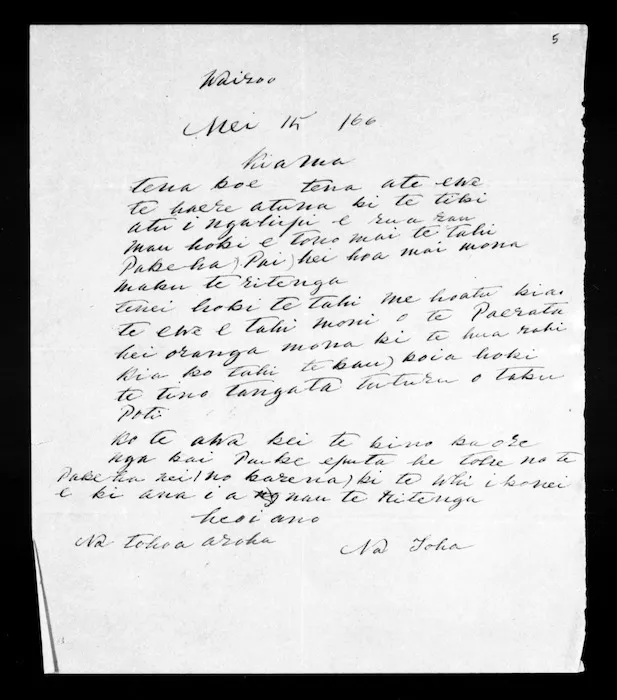 5
Wairoa
Mei 15 /66
Kia Ma
tena koe tena ate ewe
te haere atuna ki te tiki
atu i ngatiipi e rua rau
mau hoki e tono mai te tahi
Pakeha (Pai) hei hoa mai mona
maku te ritenga
tenei hoki te tahi me hoatu kia
te ewe e tahi moni o te Paerata
hei oranga mona ki te hua rahi
kia ko tahi tekau) koia hoki
te tino tangata tuturu o taku
Poti
ko te awa kei te kino kaore
nga kai Pauke eputa he tohe na te
Pakeha nei (no karena) ki te whi i konei
e ki ana i a nau te Ritenga
heoi ano
Na tohoa aroha Na Ioha